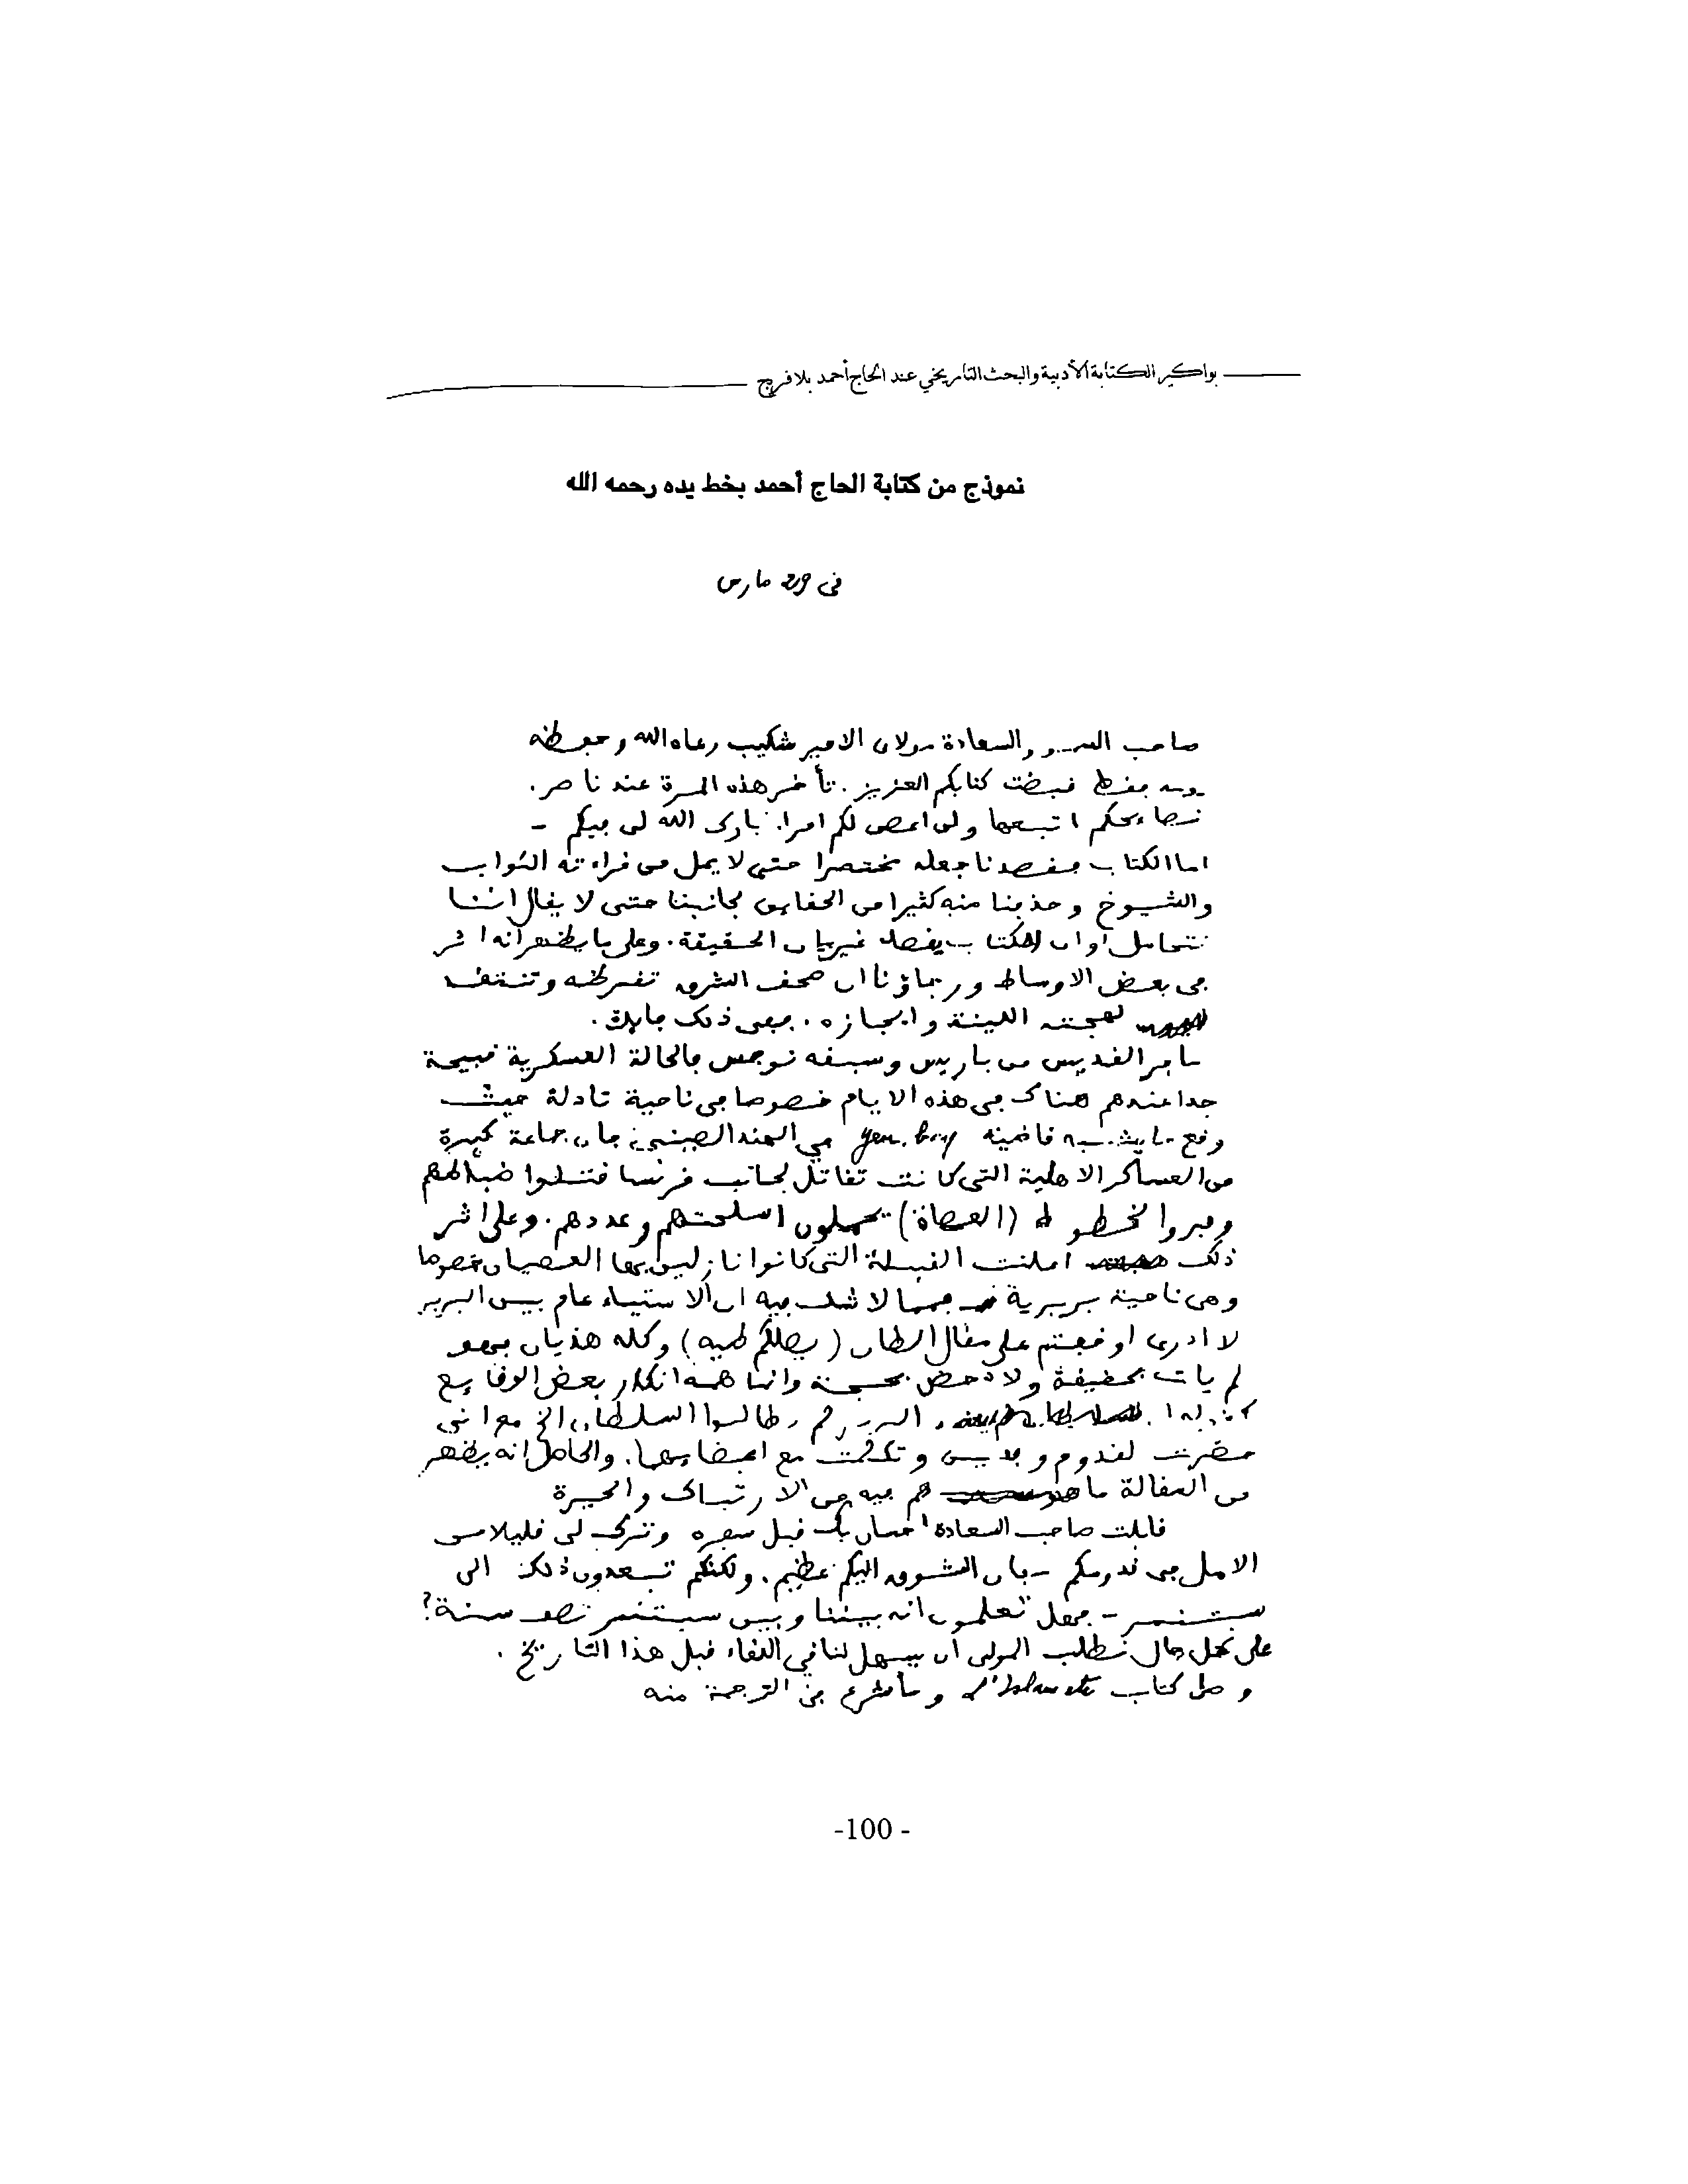 بواكير الكتابة الأدبية والبحث التاريخي عند الحاج أحمد بلافريج
نموذج من كتابة الحاج أحمد بخط يده رحمه الله
في مارس
صاحب والسعادة مولاى الامير شكيب رعاه الله وحفظه
فقط قبضت كتابكم العزيز. تأخر هذه المرة عند ناصر.
نصايحكم اتبعها ولن اعصى لكم امرا. بارك الله لى فيكم -
اما الكتاب فقصدنا جعله مختصرا حتى لا يمل من قراءته النواب
والشيوخ وحذفنا منه كثيرا من الحقايق بجانبنا حتى لا يقال اننا
نتحامل او ان الكتاب يقصد غير بيان الحقيقة. وعلى ما يظهر انه اثر
فى بعض الاوساط وربما ان صحف الشرق تقرظه وتنتقد
لهجته اللينة وايجازه. ففى ذلك فايدة.
سافر القديس من باريس وسبقه نوجس فالحالة العسكرية قبيحة
جدا عندهم هناك فى هذه الايام خصوصا فى ناحية تادلة حيث
وقع ما يشبه قاضية Yen. Bay في الهند الصينية فان جماعة كبيرة
من العساكر الاهلية التى كانت تقاتل لجانب فرنسا قتلوا ضباطهم
وفروا لخطوط (العصاة) يحملون اسلحتهم وعددهم. وعلى اثر
ذلك اعلنت القبيلة التى كانوا نازلين بها العصيان خصوصا
وهى ناحية بربرية فمما لا شك فيه ان الاستياء عام بين البربر
لا ادرى اوقعتم على مقال الطان (يصلكم طيه) وكله هذيان فهو
لم يات بحقيقة ولا دحض بحجة وانما همه انكار بعض الوقايع
البربر لم يطالبوا السلطان الخ مع انى
حضرت لقدوم وفدين وتكلمت مع اعضايهما. والحاصل انه يظهر
من المقالة ما هم فيه من الارتباك والحيرة
قابلت صاحب السعادة احسان بك قبل سفره وترك لى قليلا من
الامل فى قدومكم - فان الشوق اليكم عظيم. ولكنكم تبعدون ذلك الى
سبتنمبر - فهل تعلمون انه بيننا وبين سبتنمبر نصف سنة؟
على كل حال نطلب المولى ان يسهل لنا في اللقاء قبل هذا التاريخ.
وصل كتاب وسأشرع في الترجمة منه
-100 -